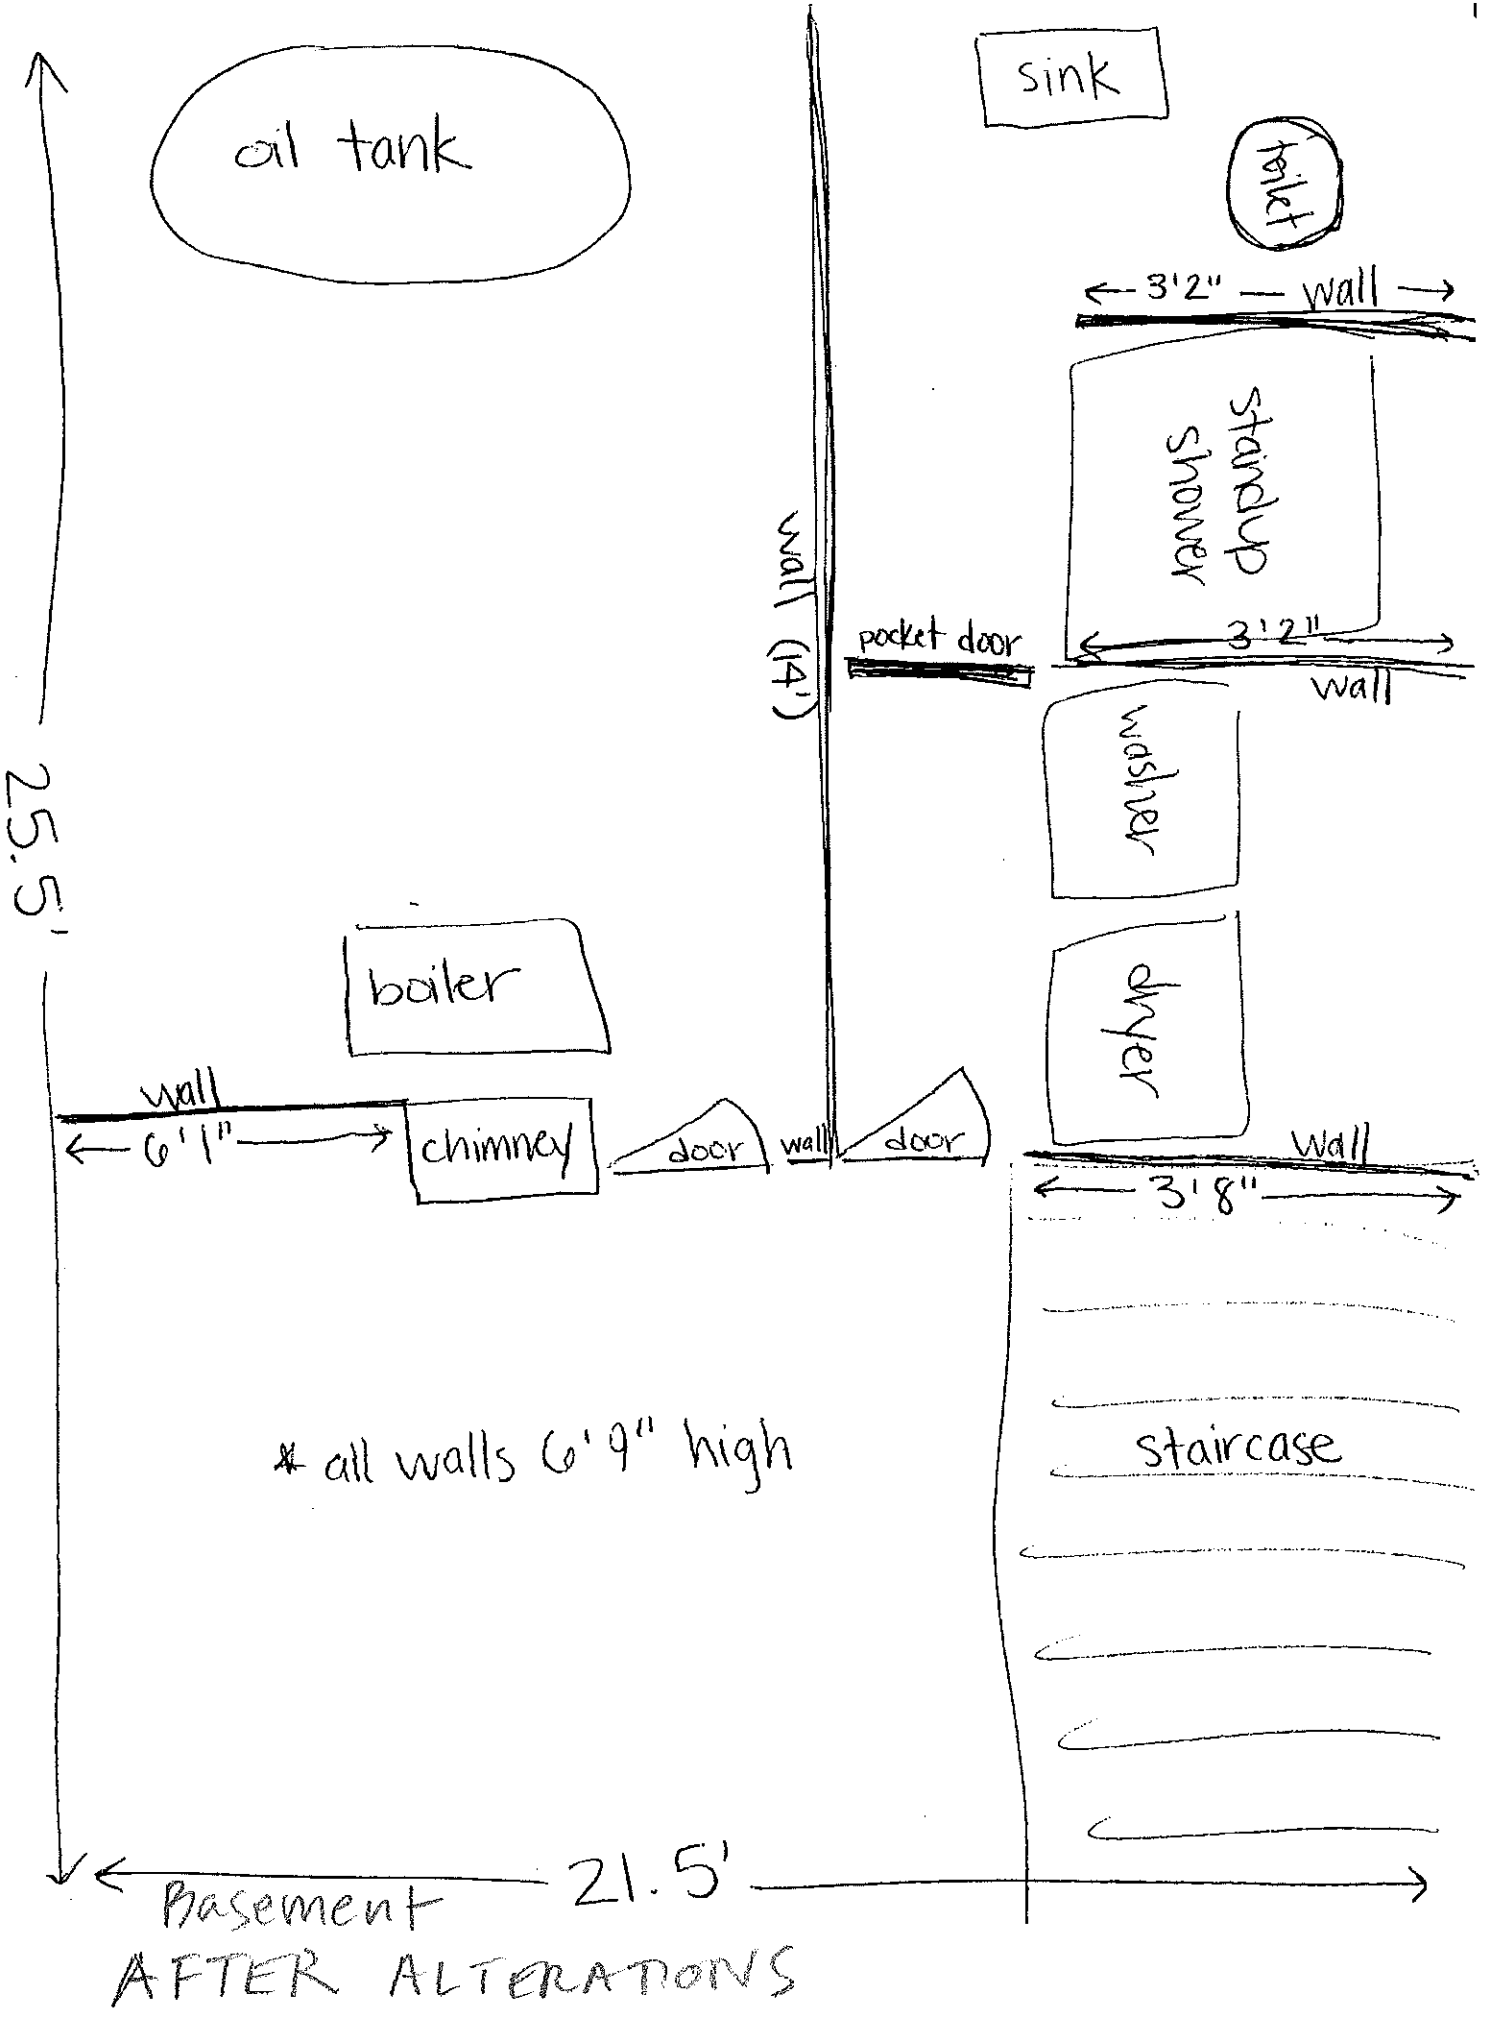 sink
oil tank
toilet
3'2" wall
standup
shower
wall (14')
pocket door
3'2"
wall
washer
25.5'
boiler
dryer
wall
6'1"
chimney
door
wall
door
wall
3'8"
* all walls 6'9" high
staircase
21.5'
Basement
AFTER ALTERATIONS